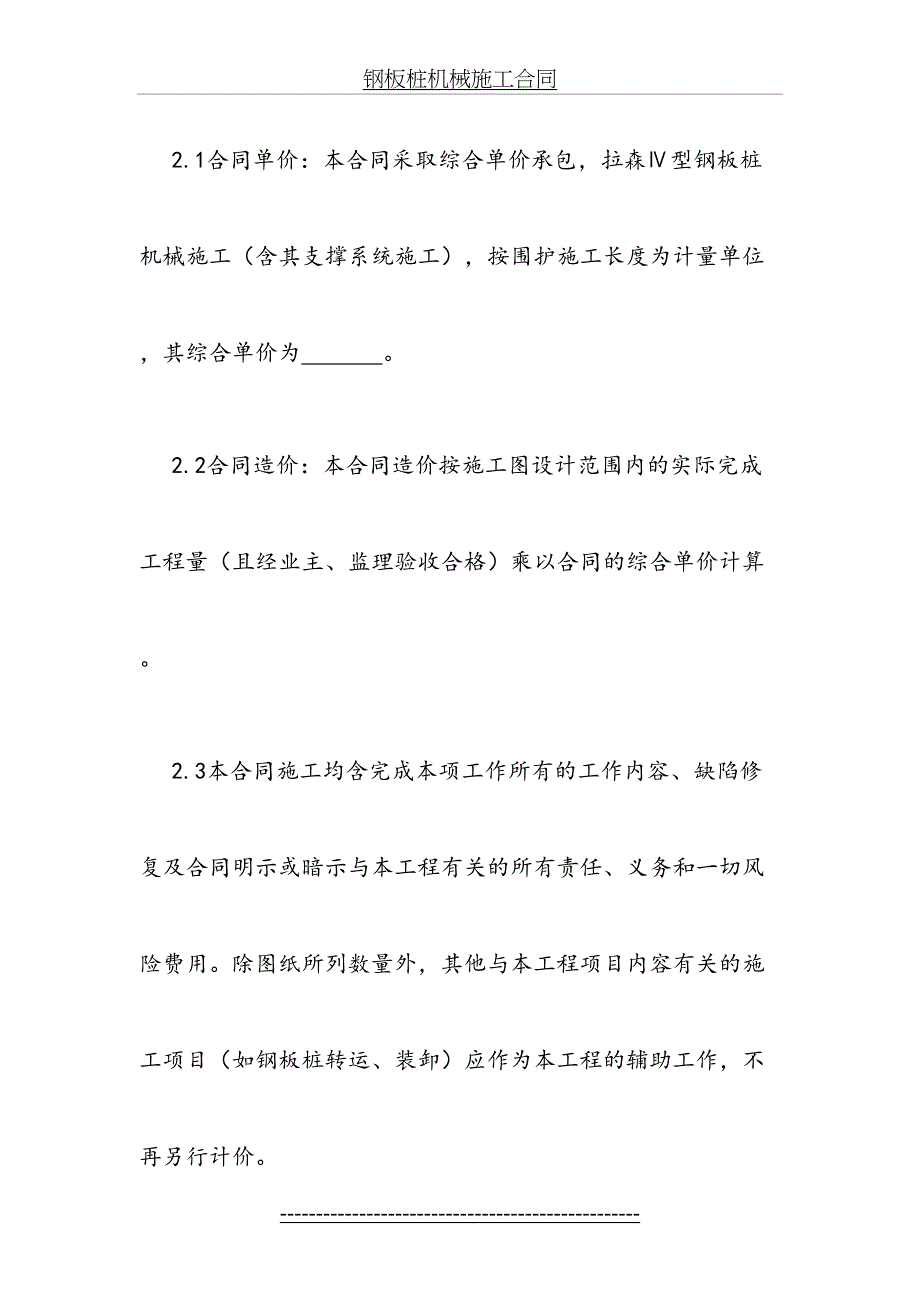 钢板桩机械施工合同
2.1合同单价：本合同采取综合单价承包，拉森Ⅳ型钢板桩
机械施工（含其支撑系统施工），按围护施工长度为计量单位
，其综合单价为_______。
2.2合同造价：本合同造价按施工图设计范围内的实际完成
工程量（且经业主、监理验收合格）乘以合同的综合单价计算
。
2.3本合同施工均含完成本项工作所有的工作内容、缺陷修
复及合同明示或暗示与本工程有关的所有责任、义务和一切风
险费用。除图纸所列数量外，其他与本工程项目内容有关的施
工项目（如钢板桩转运、装卸）应作为本工程的辅助工作，不
再另行计价。
--------------------------------------------------